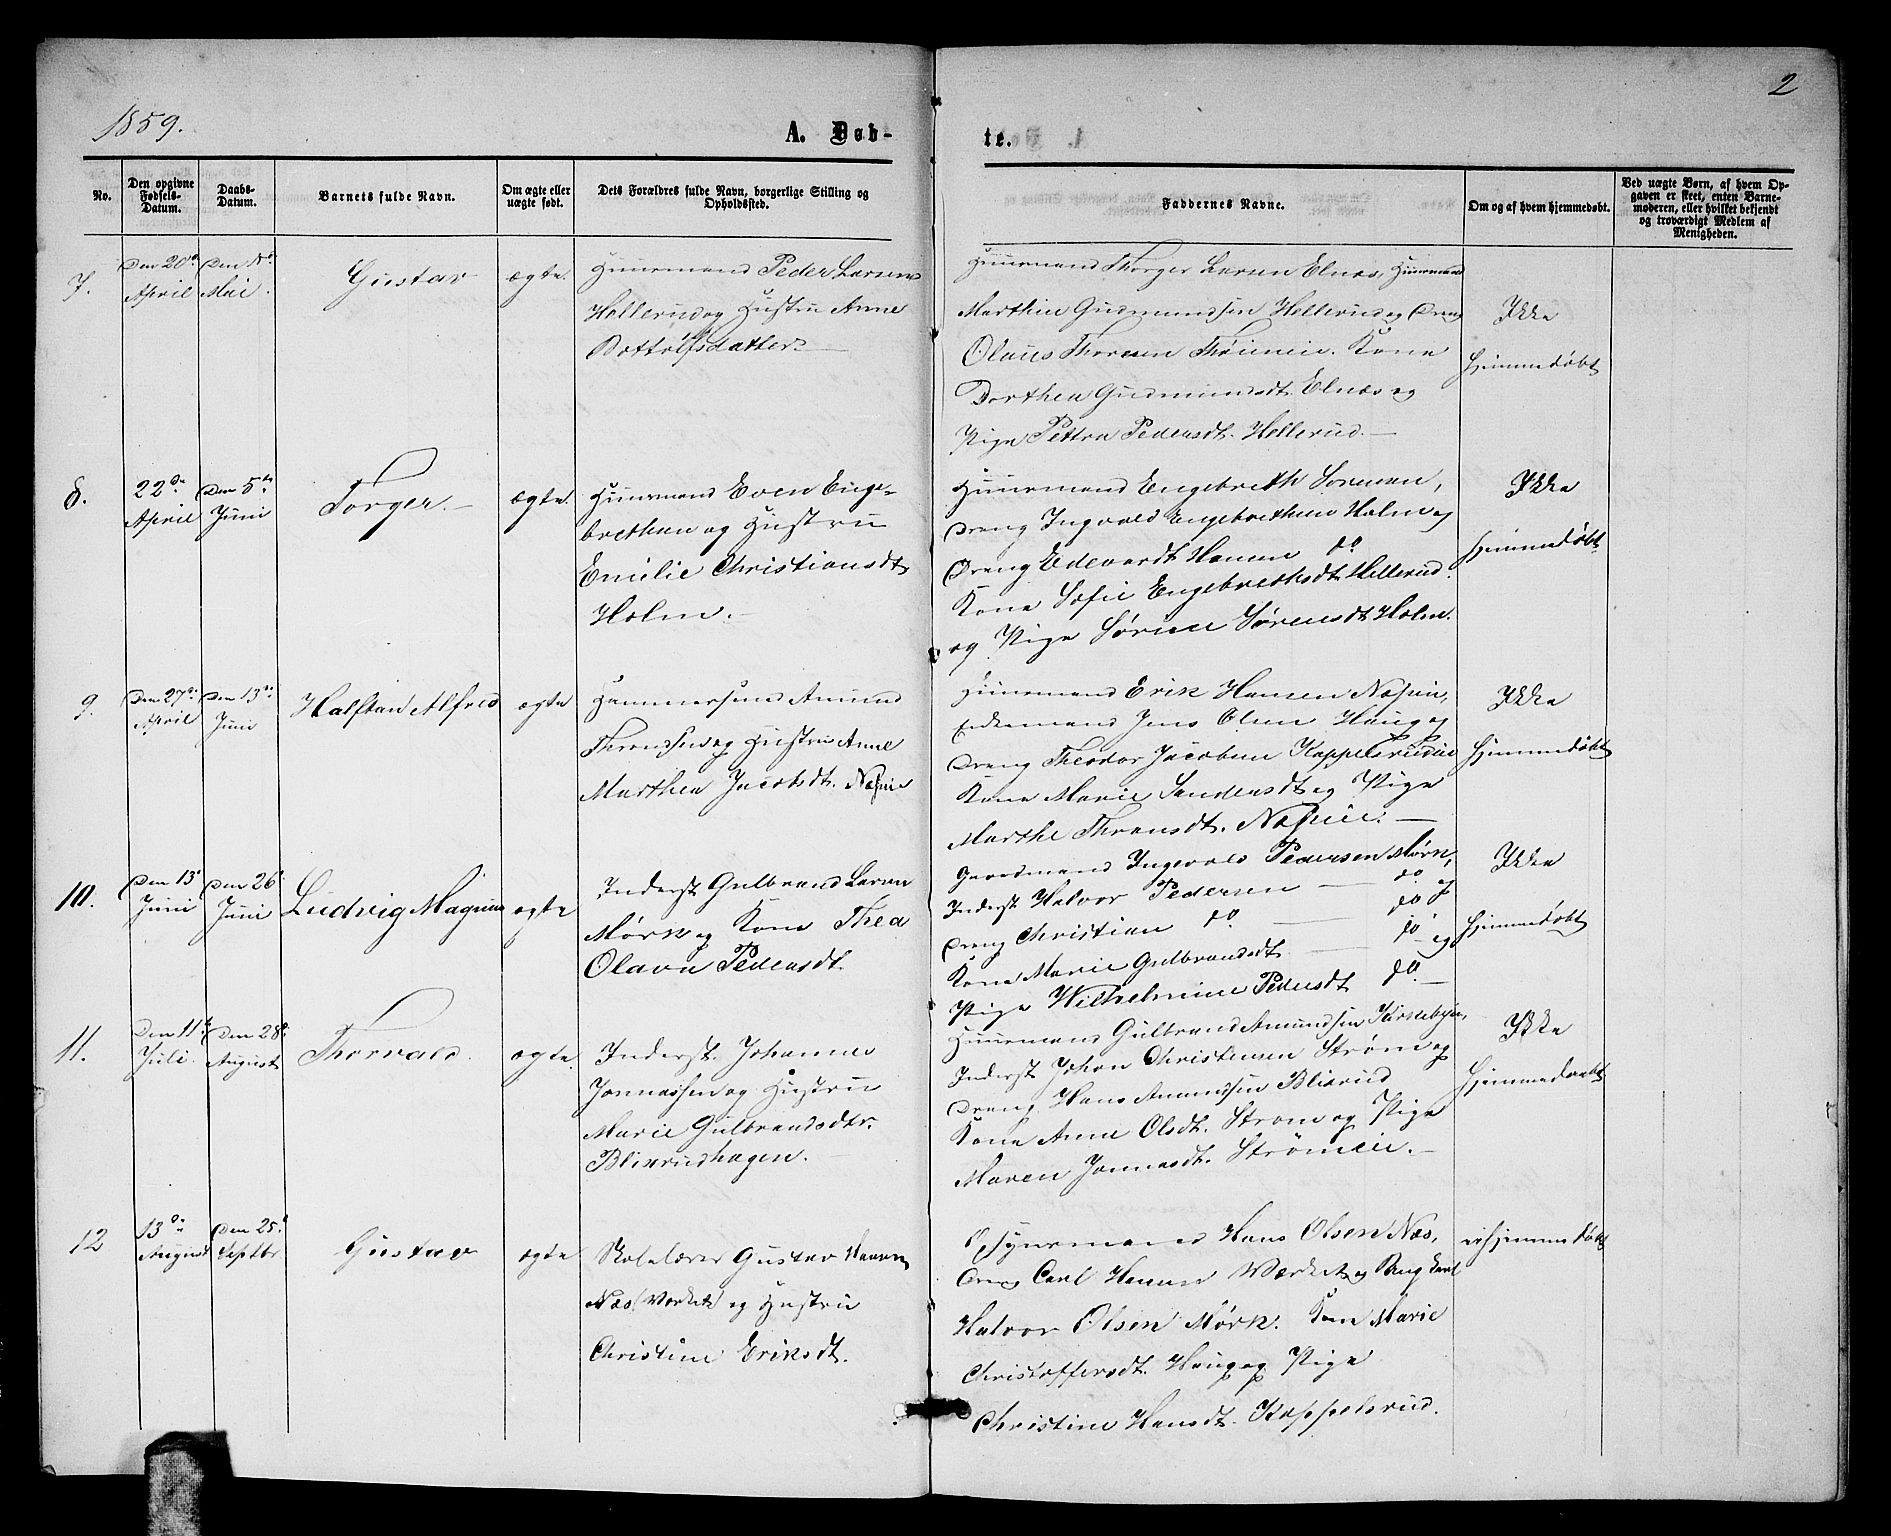 1859.
2
A. Døb-
te.
No.
Den opgivne Fødsels-Datum.
Daabs-Datum.
Barnets fulde Navn.
Om ægte eller uægte født.
Dets Forældres fulde Navn, borgerlige Stilling og Opholdssted.
Faddernes Navne.
Om og af hvem hjemmedøbt.
Ved uægte Børn, af hvem Op-
gaven er skeet, enten Barne-
moderen, eller hvilket bekjendt
og troværdigt Medlem af
Menigheden.
7.
Den 20de
April
Den
Mai
Gustav
ægte
Huusmand Peder Larsen
Hellerud og Hustru Anne
Bottolfsdatter
Huusmand Thorger Larsen Elnæs, Huusmand
Marthin Gudmundsen Hellerud og Dreng
Olaus Thoresen Kone
Dorthea Gudmundsdt. Elnæs og
Pige Pettra Pedersdt. Hellerud.
Ikke
hjemmedøbt
8.
22de
April
Den 5te
Juni
Torger.
ægte
Huusmand Even Enge-
brethsen og Hustru
Emilie Christiansdt
Holm.
Huusmand Engebreth Sørensen,
Dreng Ingvald Engebrethsen Holm og
Dreng Edevardt Hansen do
Kone Sofie Engebrethsdt. Hellerud
og Pige Sørine Sørensdt Holm.
Ikke
hjemmedøbt
9.
Den 27de
April
Den 13de
Juni
Halftan Alfred
ægte
Hammersmed Amund
Thronsen og Hustru Anne
Marthea Jacobsdt.
Huusmand Erik Hansen
Enkemand Jens Olsen Haug og
Dreng Theodor Jacobsen
Kone Marie og Pige
Marthe Thronsdt.
Ikke
hjemmedøbt
10.
Den 13de
Juni
Den 26de
Juni
Ludvig Magnus
ægte
Inderst Gulbrand Larsen
Mørk og Kone Thea
Olava Pedersdt
Gaardmand Ingevald Pedersen Mørk,
Inderst Halvor Pedersen do
Dreng Christian do. do og
Kone Marie Gulbrandsdt. do og
Pige Wilhelmine Pedersdt do.
Ikke
hjemmedøbt
11.
Den 11te
Juli
Den 28de
August
Thorvald.
ægte
Inderst Johannes
Jonnassen og Hustru
Marie Gulbrandsdtr.
Blixrudhagen.
Huusmand Gulbrand Amundsen Kirkebyen,
Inderst Johan Christensen Strøm og
Dreng Hans Amundsen Blixrud
Kone Anne Olsdt. Strøm og Pige
Maren Jonnasdt. Strømeie.
Ikke
hjemmedøbt
12
13de
August
Den 25de
Septbr
Gustav
ægte
Skolelærer Gustav Hansen
Næs (Værket) og Hustru
Christine Eriksdt.
Opsynsmand Hans Olsen Næs,
Dreng Carl Hansen Værket og
Halvor Olsen Mørk. Kone Marie
Christoffersdt. Haug og Pige
Christine Hansdt. Kappelsrud.
ei hjemmedøbt